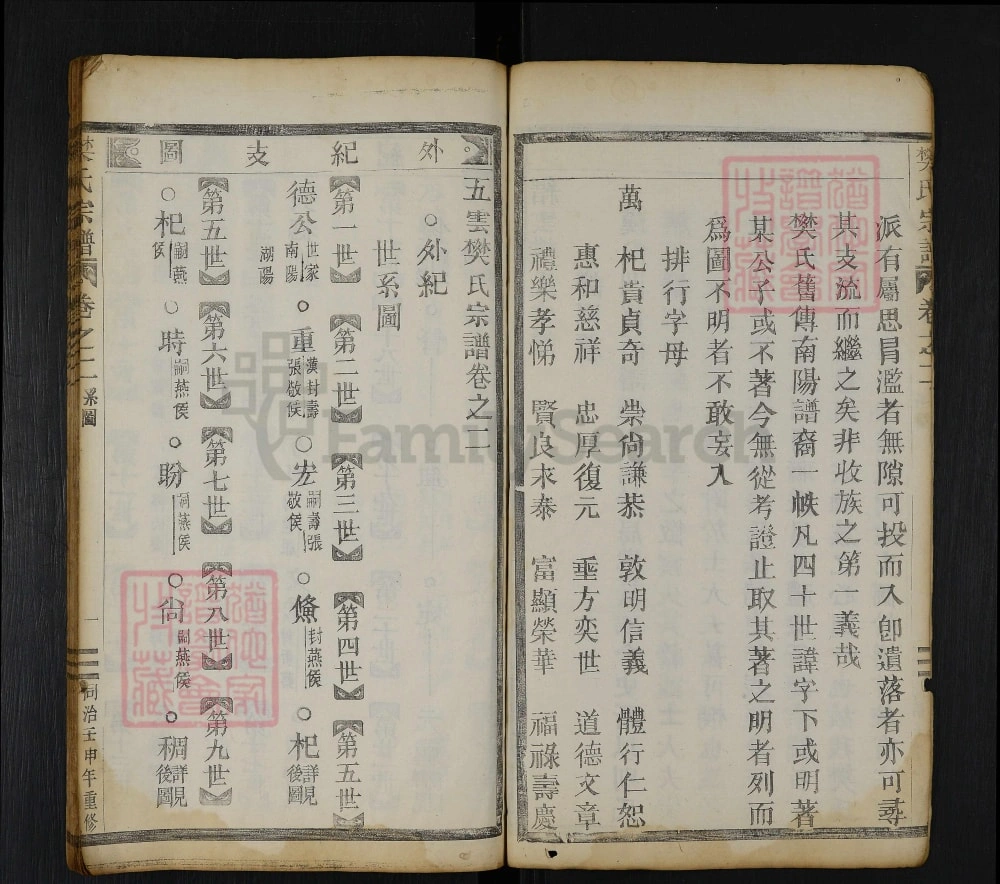 樊氏宗譜 卷之二
派有屬思冒濫者無隙可投而入卽遺落者亦可尋
其支流而繼之矣非收族之第一義哉
樊氏舊傳南陽譜裔一帙凡四十世諱字下或明著
某公子或不著今無從考證止取其著之明者列而
爲圖不明者不敢妄入
排行字母
萬 杞貴貞奇 崇尙謙恭 敦明信義 體行仁恕
惠和慈祥 忠厚復元 垂方奕世 道德文章
禮樂孝悌 賢良永泰 富顯榮華 福祿壽慶
外紀支圖
五雲樊氏宗譜卷之二
○外紀
世系圖
【第一世】【第二世】【第三世】【第四世】【第五世】
德公 世家南陽湖陽 ○重 漢封壽張敬侯 ○宏 嗣壽張敬侯 ○儵 封燕侯 ○杞 詳見後圖
【第五世】【第六世】【第七世】【第八世】【第九世】
○杞 嗣燕侯 ○時 嗣燕侯 ○盼 嗣燕侯 ○尙 嗣燕侯 ○稠 詳見後圖
樊氏宗譜 卷之二 系圖 一 同治壬申年重修
FamilySearch